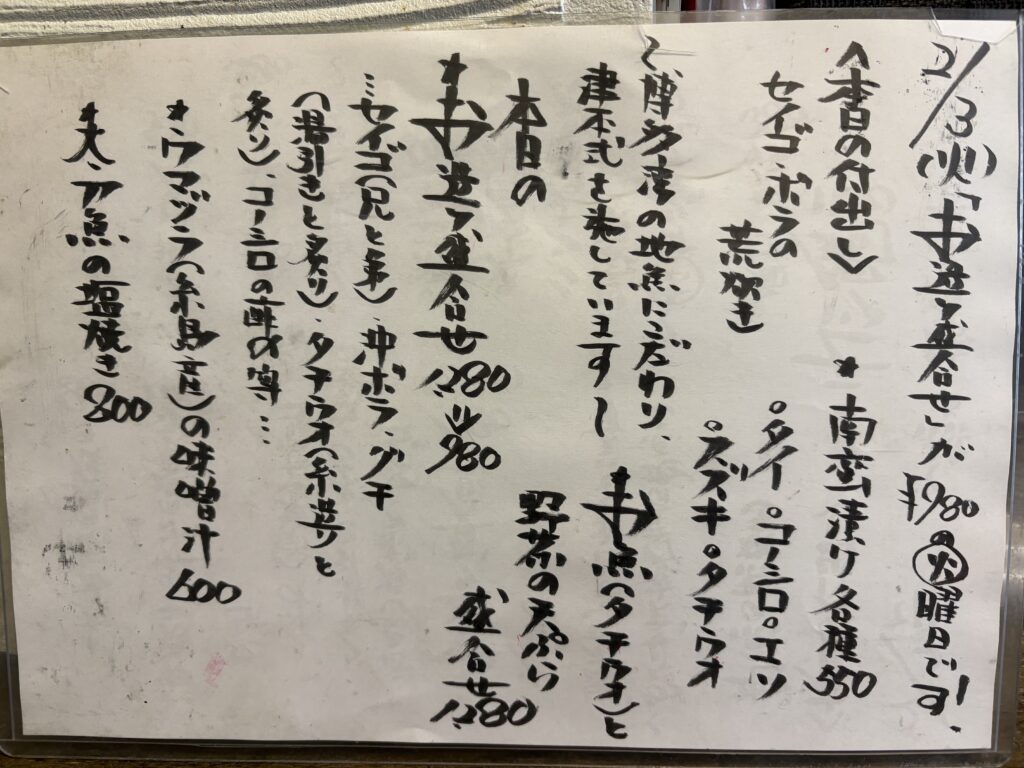 2/3(火)「お造り盛合せ」が¥980の㊋曜日です!、
〈本日の付出し〉
セイゴ・ボラの
荒炊き
★南蛮漬け各種550
○タイ○コノシロ○エソ
○スズキ○タチウオ
〜博多湾の地魚にこだわり、
津本式を施しています〜
★お魚(タチウオ)と
野菜の天ぷら
盛合せ1,280
本日の
★お造り盛合せ1,280⇒980
…セイゴ(兄と弟)・沖ボラ・グチ
(湯引きと炙り)・タチウオ(糸造りと
炙り)、コノシロの酢の〆…
★ウマヅラ(糸島産)の味噌汁600
★大・刀魚の塩焼き800